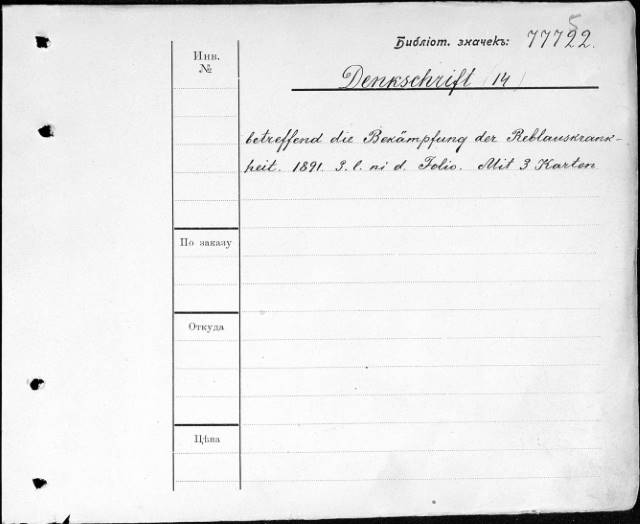 Библіот. значекъ: 77722.
5
Инв.
№
Denkschrift (14)
betreffend die Bekämpfung der Reblauskrank-
heit. 1891. S. l. ni d. Folio. Mit 3 Karten
По заказу
Откуда
Цѣна